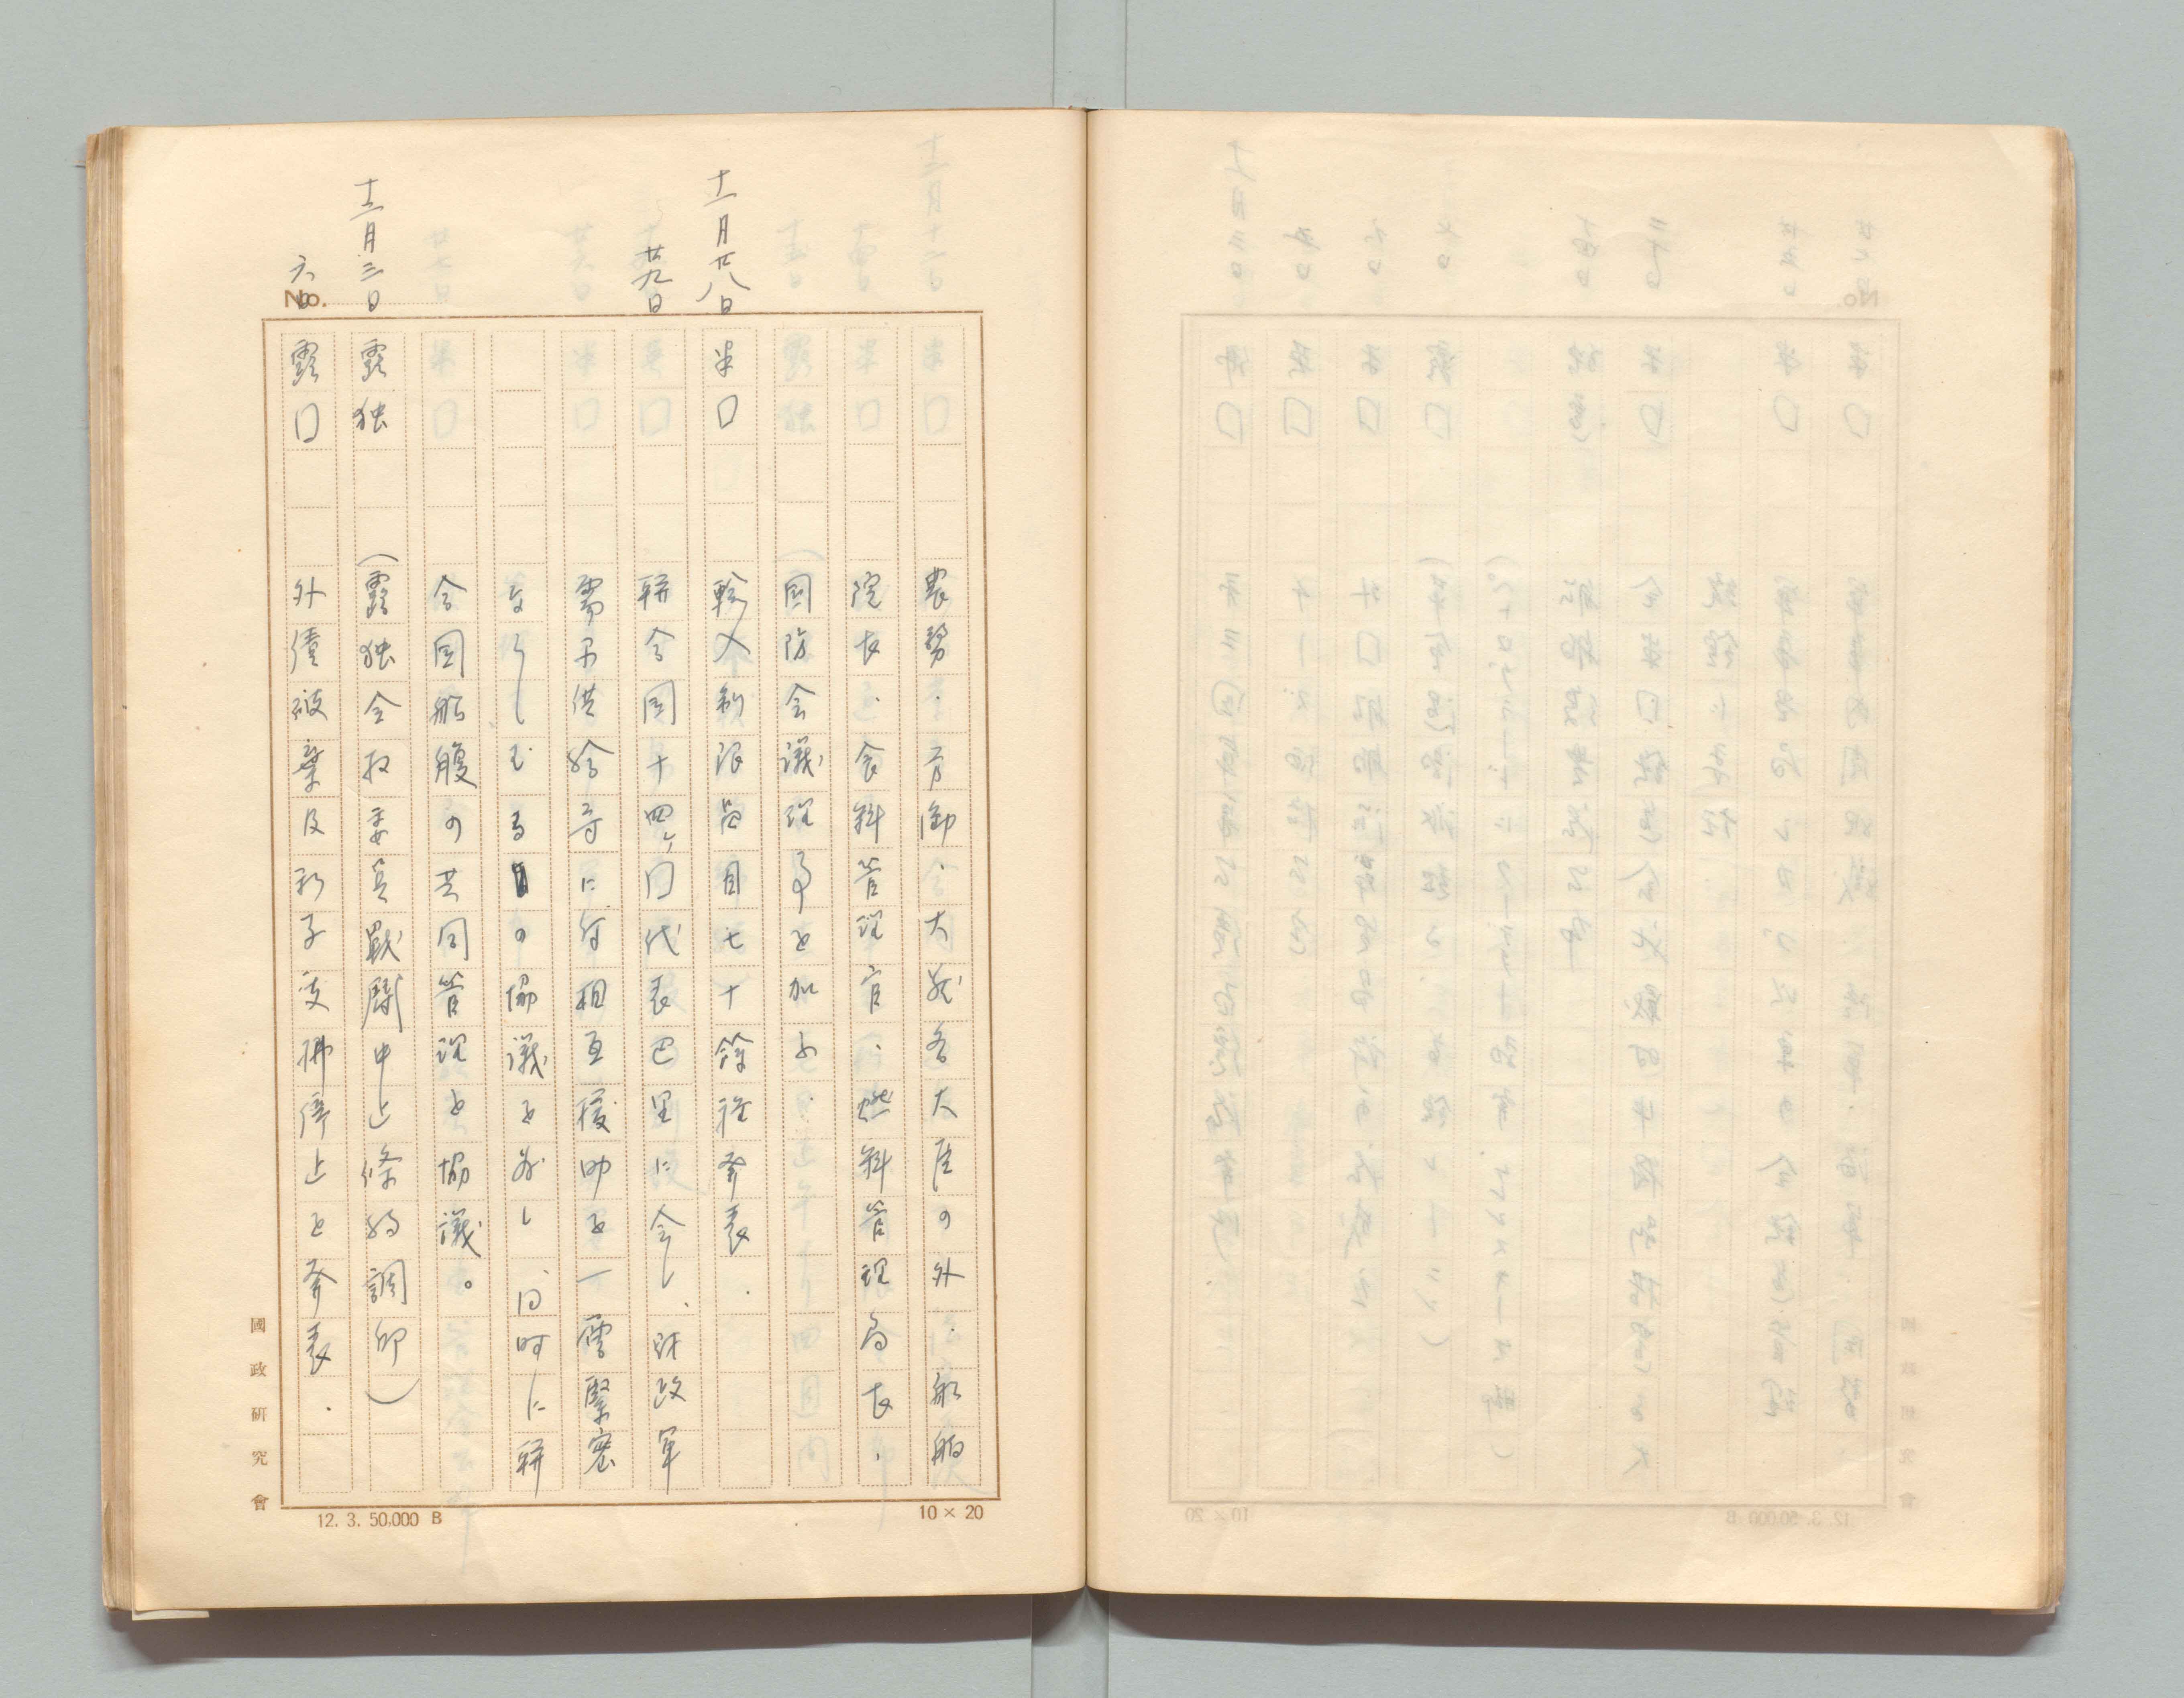 No.
農務．労働．大蔵各大臣の外．船舶
院長．食料管理官．燃料管理局長．
国防会議理事を加ふ．
十一月廿八日 米囗 輸入制限品目七十餘種発表．
廿九日 聯合国十四ヶ囗代表巴里に会し、財政軍
需品供給等に付相互援助を一層緊密
ならしむるの協議を為し、同時に聯
合国船腹の共同管理を協議。
十二月三日 露独 （露独全权委員戦闘中止條約調印）
六日 露囗 外債破棄及利子支拂停止を発表．
國政研究會
12. 3. 50,000 B
10 × 20